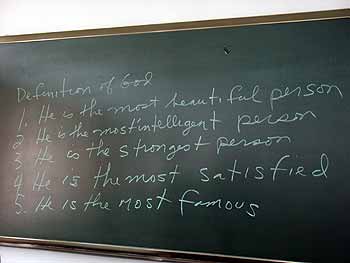 Definition of God
1. He is the most beautiful person
2. He is the most intelligent person
3. He is the strongest person
4 He is the most satisfied
5. He is the most famous